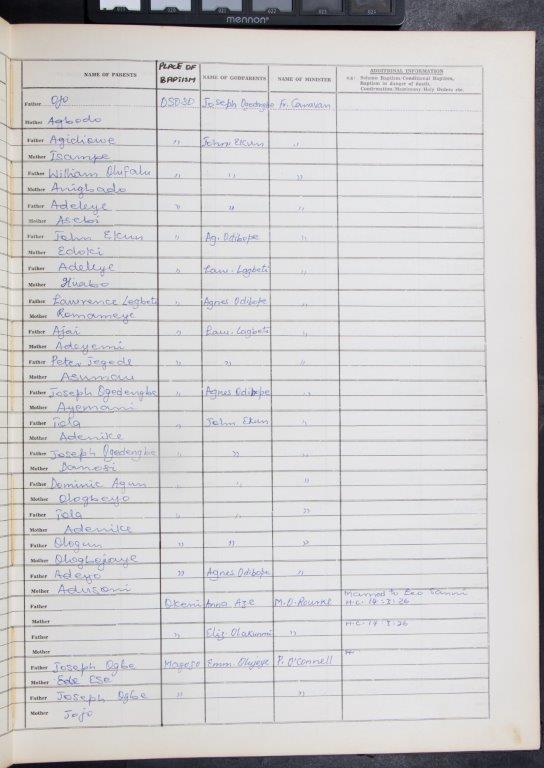 mennon
NAME OF PARENTS PLACE OF BAPTISM NAME OF GODPARENTS NAME OF MINISTER ADDITIONAL INFORMATION
e.g: Solemn Baptism/Conditional Baptism,
Baptism in danger of death,
Confirmation/Matrimony/Holy Orders etc.
Father Ojo OSOSO Joseph Ogedengbe Fr. Canavan
Mother Agbodo
Father Agidiowe ,, John Ekun ,,
Mother Isampe
Father William Olufalu ,, ,, ,,
Mother Anigbado
Father Adeleye ,, ,, ,,
Mother Asebi
Father John Ekun ,, Ag. Odibope ,,
Mother Edoki
Father Adeleye ,, Law. Lagbeti ,,
Mother
Father Lawrence Legbeti ,, Agnes Odibope ,,
Mother Romameye
Father Ajai ,, Law. Lagbeti ,,
Mother Adeyemi
Father Peter Jegede ,, ,, ,,
Mother Asumau
Father Joseph Ogedengbe ,, Agnes Odibope ,,
Mother Ayemami
Father Tola ,, John Ekun ,,
Mother Adenike
Father Joseph Ogedengbe ,, ,, ,,
Mother Danosi
Father Dominic Agun ,, ,, ,,
Mother Ologbeyo
Father Tola ,, ,, ,,
Mother Adenike
Father Ologun ,, ,, ,,
Mother Ologbojaye
Father Adeyo ,, Agnes Odibope ,,
Mother Adusoni
Married to Leo Sanni
Father Okeni Anna Aje M.O.Rourke H.C. 14-3-26
Mother
H.C. 14-3-26
Father ,, Eliz. Olakunmi ,,
Mother
Father Joseph Ogbe Mageso Emm. Oluyeye P. O'Connell
Mother Ese
Father Joseph Ogbe ,, ,,
Mother Jojo